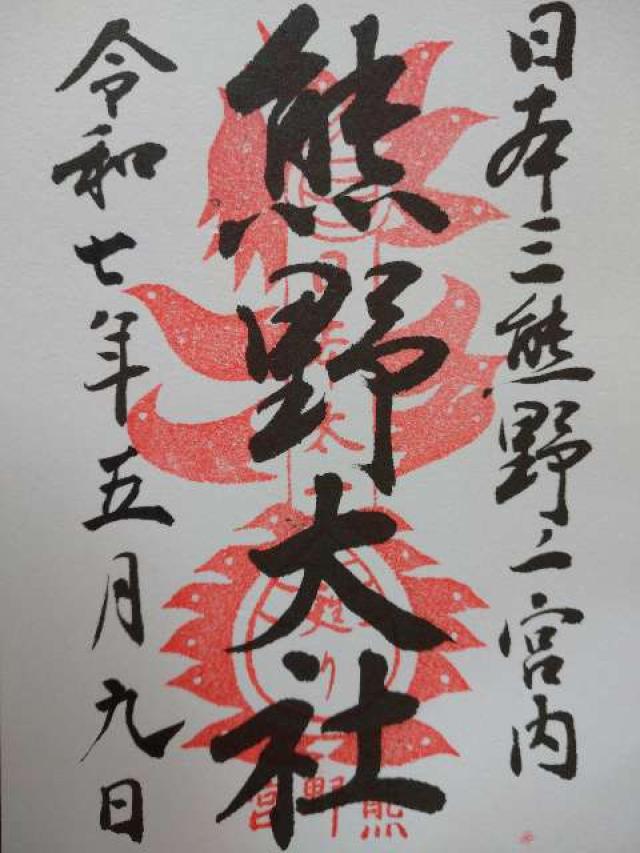 日本三熊野之一宮内
熊野大社
令和七年五月九日